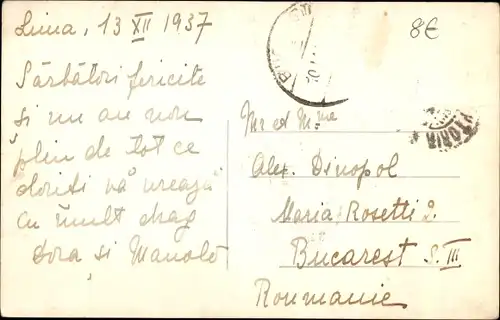 Lima, 13 XII 1937
8€
Sărbători fericite
și un an nou
plin de tot ce
doriți vă urează
cu mult drag
Dora și Manolo
Mr et Mme
Alex. Dinopol
Maria Rosetti 2.
Bucarest S. III
Roumanie